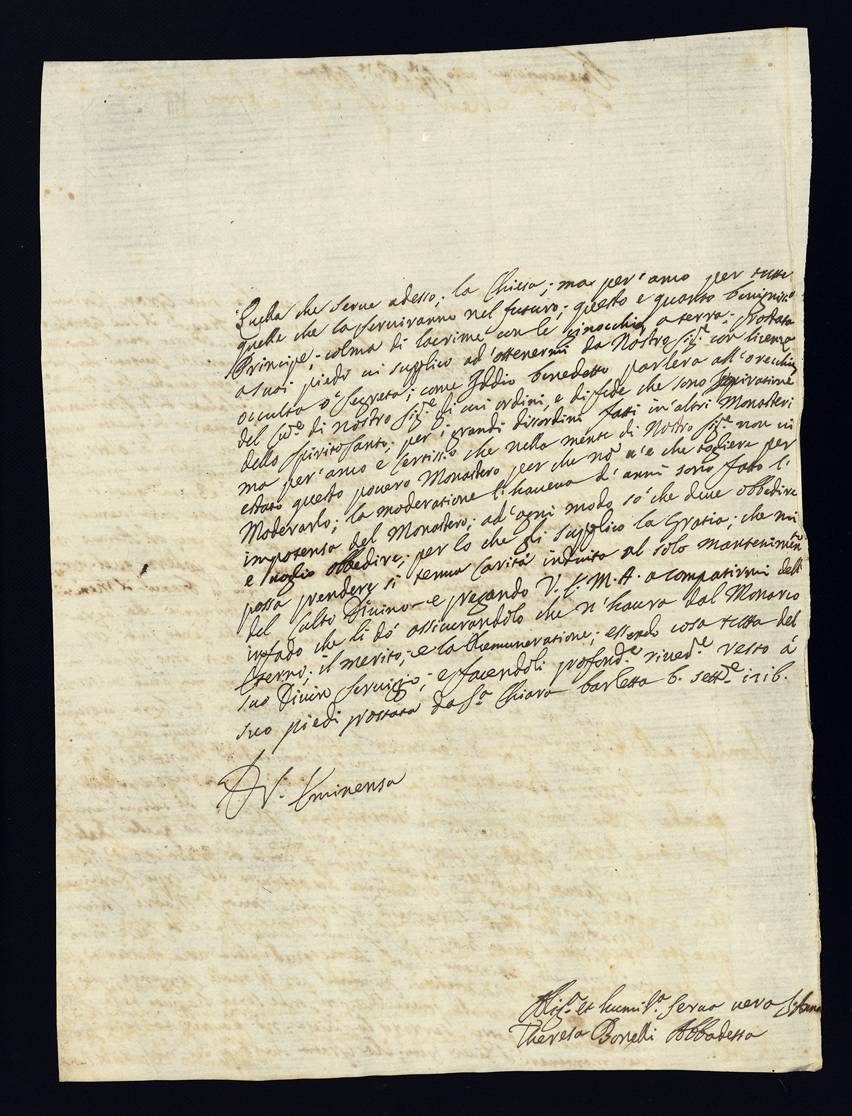 Quella che serue adesso; la Chiesa; ma per'anco per tutte
quelle che la seruiranno nel futuro; questo e quanto benignis.mo
Principe; colma di lacrime con le ginocchia a terra; prostata
a suoi piedi ui supplico ad'ottenermi da Nostro Sig.re con licenza
occulta o' segreta; come Iddio benedetto parlera all'orecchio
del di Nostro Sig.re di cui ordini, e di fede che sono Inspiratione
dello Spirito Santo; per i grandi disordini fatti in'altri Monasteri
ma per'anco e certissimo che nella mente di Nostro Sig.re non ui
estato questo pouero Monastero per che no' u'e che togliere per
Moderarlo; la moderatione l'haueua d'anni sono fato l'
impotenza del Monastero; ad'ogni modo so' che deue obbedire
e uoglio obbedire; per lo che gli supplico la Gratia; che mi
possa prendere si tenua Carità intuita al solo mantenimento
del Culto Diuino e pregando V. E. M. A. a compatirmi dell'
infado che li dò assicurandolo che n'haura dal Monarca
Eterno; il merito; e la Remuneratione; essendo cosa tutta del
suo Diuin seruizio; e facendoli profond.e riued.e resto à
suo piedi prostata da S.a Chiara barletta 6. sett.e 1716.
D V. Eminensa
et humil.a serua uera
Theresa Bonelli Abbadessa